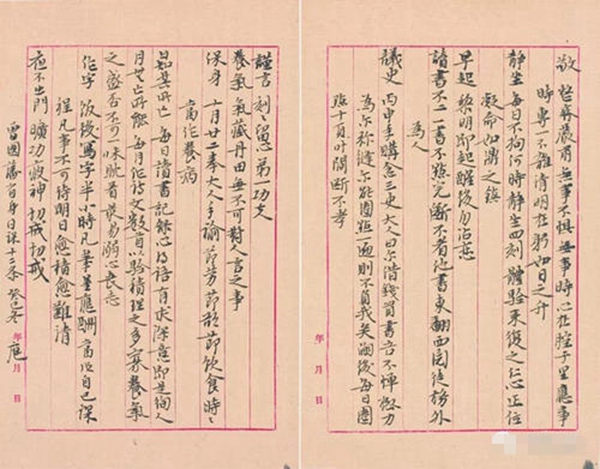 敬 整齊嚴肅無事不懼 無事時心在腔子里應事
時專一不雜清明在躬如日之升
静坐 每日不拘何時静坐四刻 體驗來復之仁心正位
凝命如鼎之鎮
早起 黎明即起醒後勿沾恋
讀書不二 一書不點完断不看他書東翻西阅徒務外
為人
讀史 丙申年購念三史大人曰尔借錢買書吾不憚極力
為尔弥縫尔能圈點一遍則不負我矣嗣後每日圈
點十頁間断不孝
年月日
謹言 刻刻留心第一功夫
養氣 氣藏丹田無不可對人言之事
保身 十月廿二奉大人手諭節勞節欲節飲食時時
當作養病
日知其所亡 每日讀書記錄心得語有求深意即是徇人
月無亡所能 每月作詩文數首以驗積理之多寡養氣
之盛否不可一味耽着最易溺心喪志
作字 飯後寫字半小時凡筆墨應酬當作自己課
程凡事不可待明日愈積愈難清
夜不出門 曠功疲神切戒切戒
曾國藩脩身日課十二条 癸巳冬
年月日